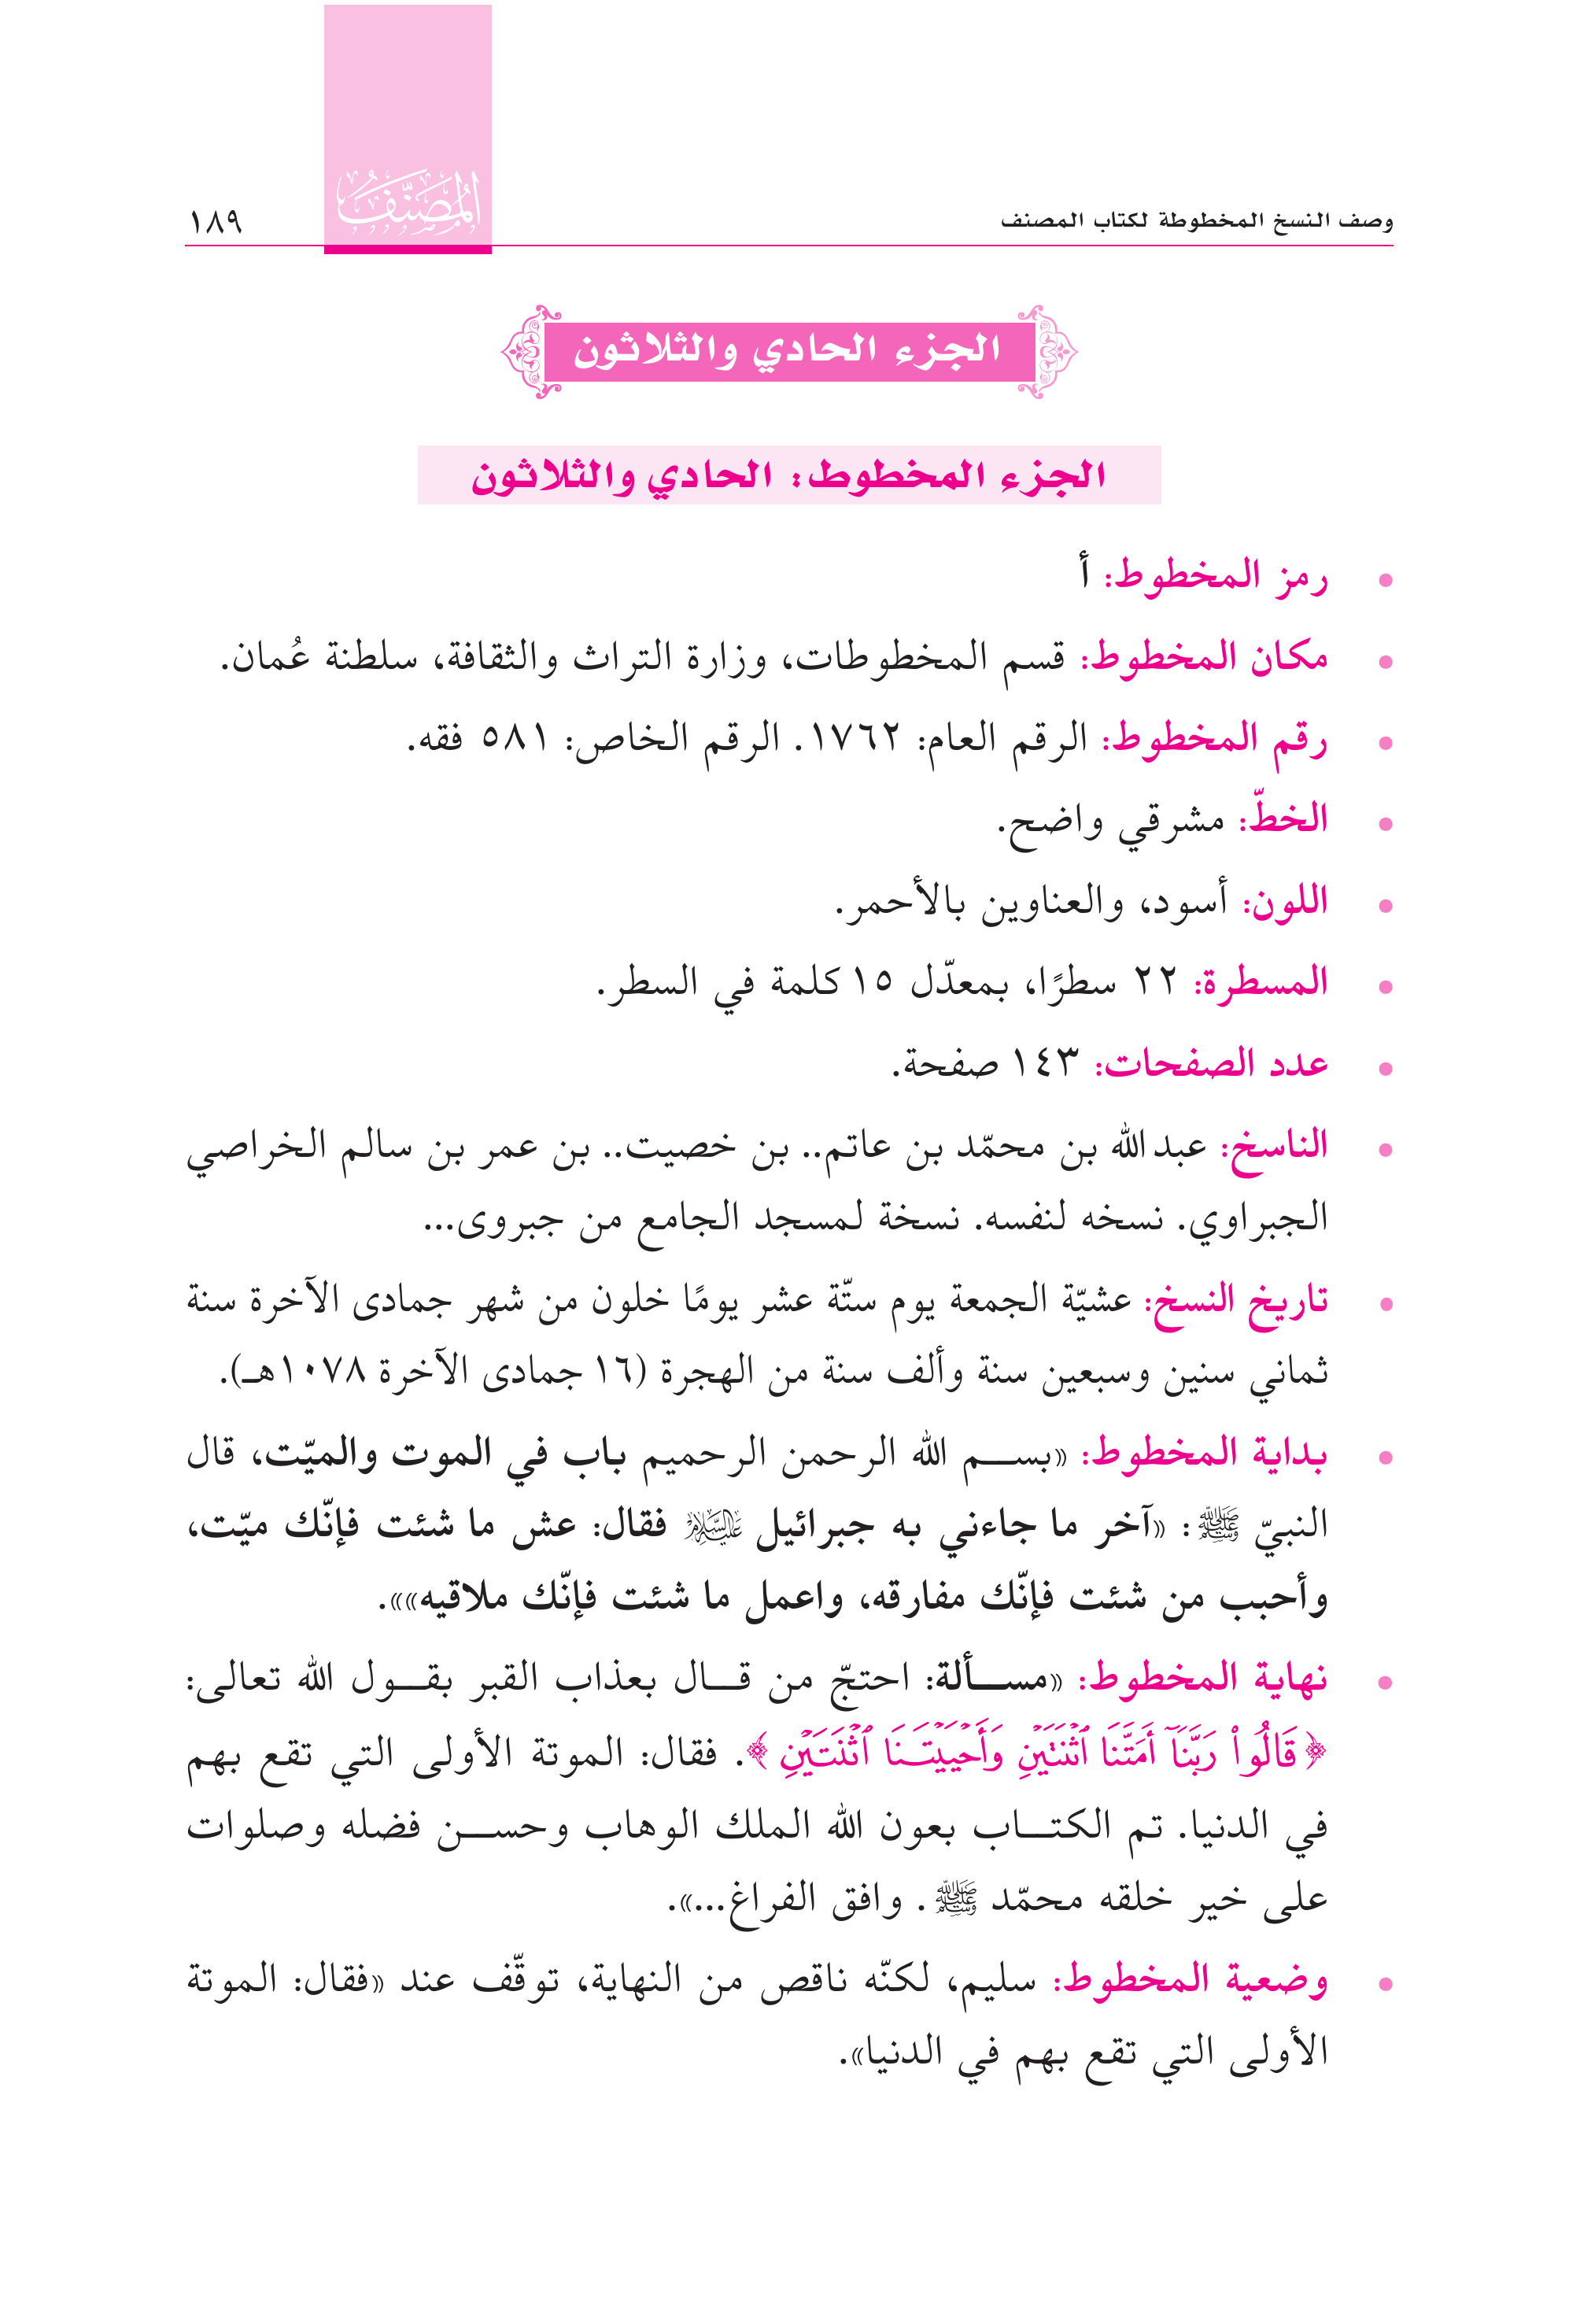 وصف النسخ المخطوطة لكتاب المصنف
المُصَنَّف
١٨٩
الجزء الحادي والثلاثون
الجزء المخطوط: الحادي والثلاثون
• رمز المخطوط: أ
• مكان المخطوط: قسم المخطوطات، وزارة التراث والثقافة، سلطنة عُمان.
• رقم المخطوط: الرقم العام: ١٧٦٢. الرقم الخاص: ٥٨١ فقه.
• الخطّ: مشرقي واضح.
• اللون: أسود، والعناوين بالأحمر.
• المسطرة: ٢٢ سطرًا، بمعدّل ١٥ كلمة في السطر.
• عدد الصفحات: ١٤٣ صفحة.
• الناسخ: عبدالله بن محمّد بن عاتم.. بن خصيت.. بن عمر بن سالم الخراصي
الجبراوي. نسخه لنفسه. نسخة لمسجد الجامع من جبروى...
• تاريخ النسخ: عشيّة الجمعة يوم ستّة عشر يومًا خلون من شهر جمادى الآخرة سنة
ثماني سنين وسبعين سنة وألف سنة من الهجرة (١٦ جمادى الآخرة ١٠٧٨هـ).
• بداية المخطوط: «بسـم الله الرحمن الرحميم باب في الموت والميّت، قال
النبيّ ﷺ: «آخر ما جاءني به جبرائيل عليه السلام فقال: عش ما شئت فإنّك ميّت،
وأحبب من شئت فإنّك مفارقه، واعمل ما شئت فإنّك ملاقيه»».
• نهاية المخطوط: «مسـألة: احتجّ من قـال بعذاب القبر بقـول الله تعالى:
﴿قَالُوا۟ رَبَّنَآ أَمَتَّنَا ٱثْنَتَيْنِ وَأَحْيَيْتَنَا ٱثْنَتَيْنِ﴾. فقال: الموتة الأولى التي تقع بهم
في الدنيا. تم الكتـاب بعون الله الملك الوهاب وحسـن فضله وصلوات
على خير خلقه محمّد ﷺ. وافق الفراغ...».
• وضعية المخطوط: سليم، لكنّه ناقص من النهاية، توقّف عند «فقال: الموتة
الأولى التي تقع بهم في الدنيا».